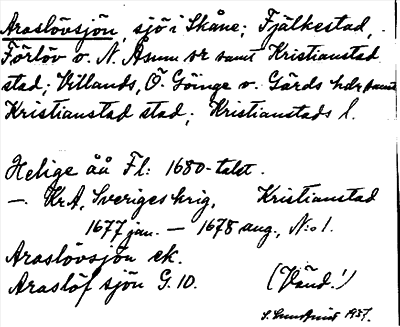 Araslövsjön, sjö i Skåne; Fjälkestad,
Förlöv o. N. Åsum sr samt Kristianstad
stad; Villands, Ö. Göinge o. Gärds hdr samt
Kristianstad stad; Kristianstads l.
Helige åå Fl: 1680-talet.
—. KrA, Sveriges krig, Kristianstad
1677 jan. — 1678 aug., N:o 1.
Araslövsjön ek.
Araslöf sjön G. 10. (Vänd!)
1937.